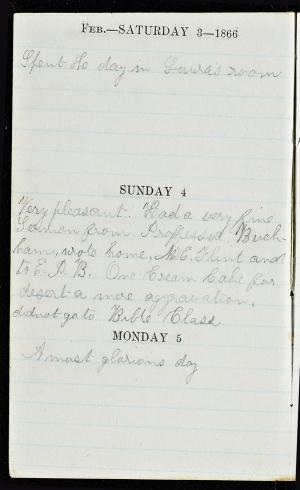 FEB.—SATURDAY 3—1866
Spent the day in Laura's room
SUNDAY 4
Very pleasant. Had a very fine
Sermon from Professor Buck-
ham, wrote home, M.E. Flint and
to E. P. B. One Cream Cake for
desert a mere aggravation,
did not go to Bible Class
MONDAY 5
A most glorious day